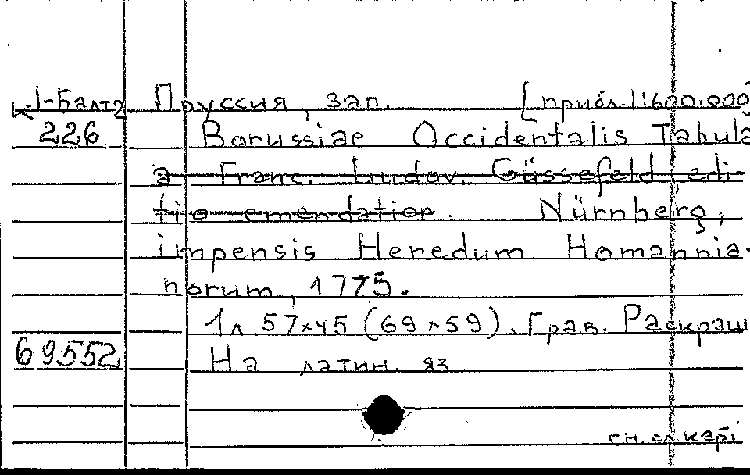 К 1-Балт2 Пруссия, зап. [прибл. 1:600.000]
226 Borussiae Occidentalis Tabula
a Franc. Ludov. Güssefeld edi
tio emendatior. Nürnberg,
impensis Heredum Homannia-
norum, 1775.
1л 57×45 (69×59). Грав. Раскраш
69552 На латин. яз